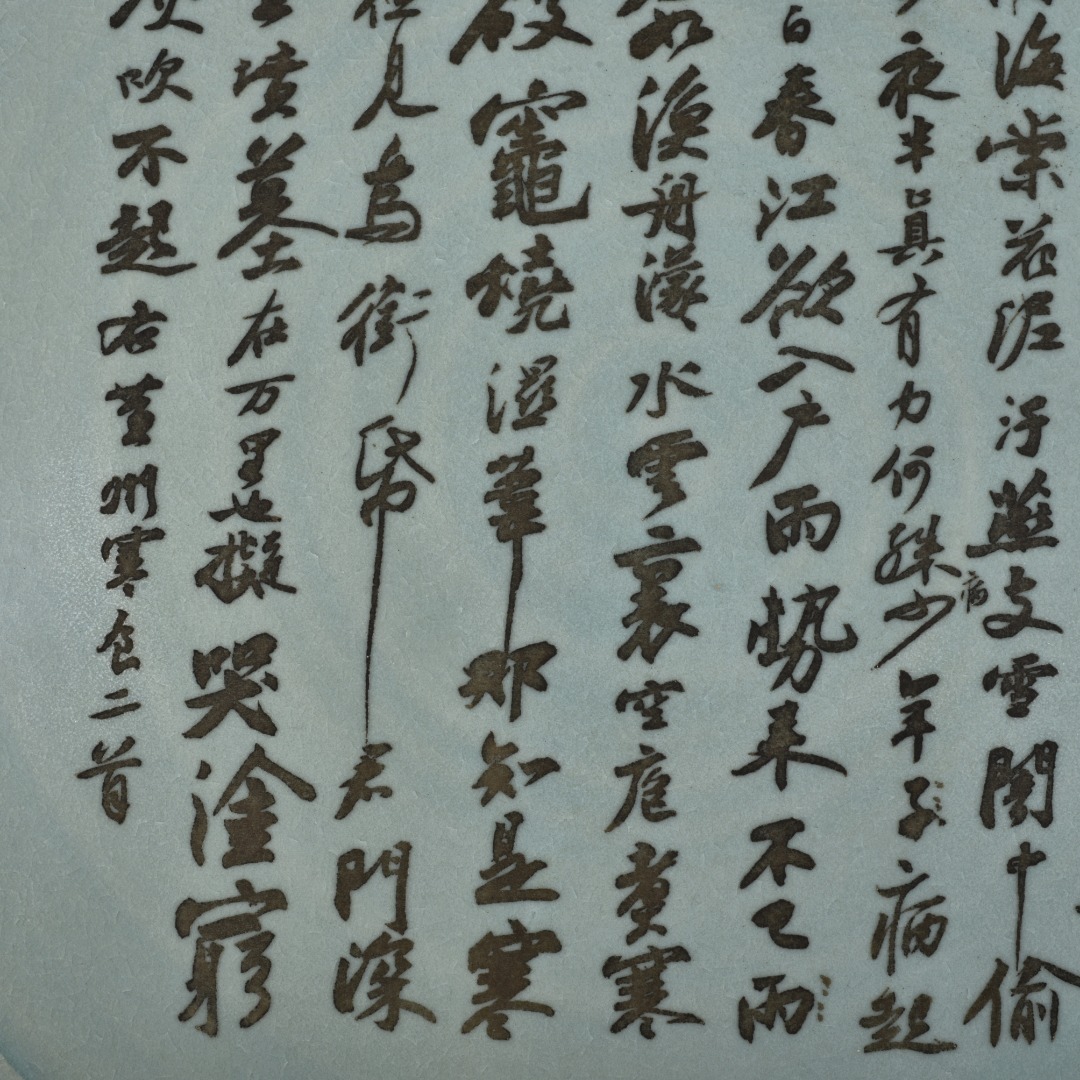 海棠花泥汙燕支雪闇中偷
夜半真有力何殊病少年子病起
白春江欲入戶雨勢来不已雨
如漁舟濛水雲裏空庖煮寒
破竈燒濕葦那知是寒
但見烏銜帋君門深
墳墓在万里也擬哭塗窮
灰吹不起右黃州寒食二首